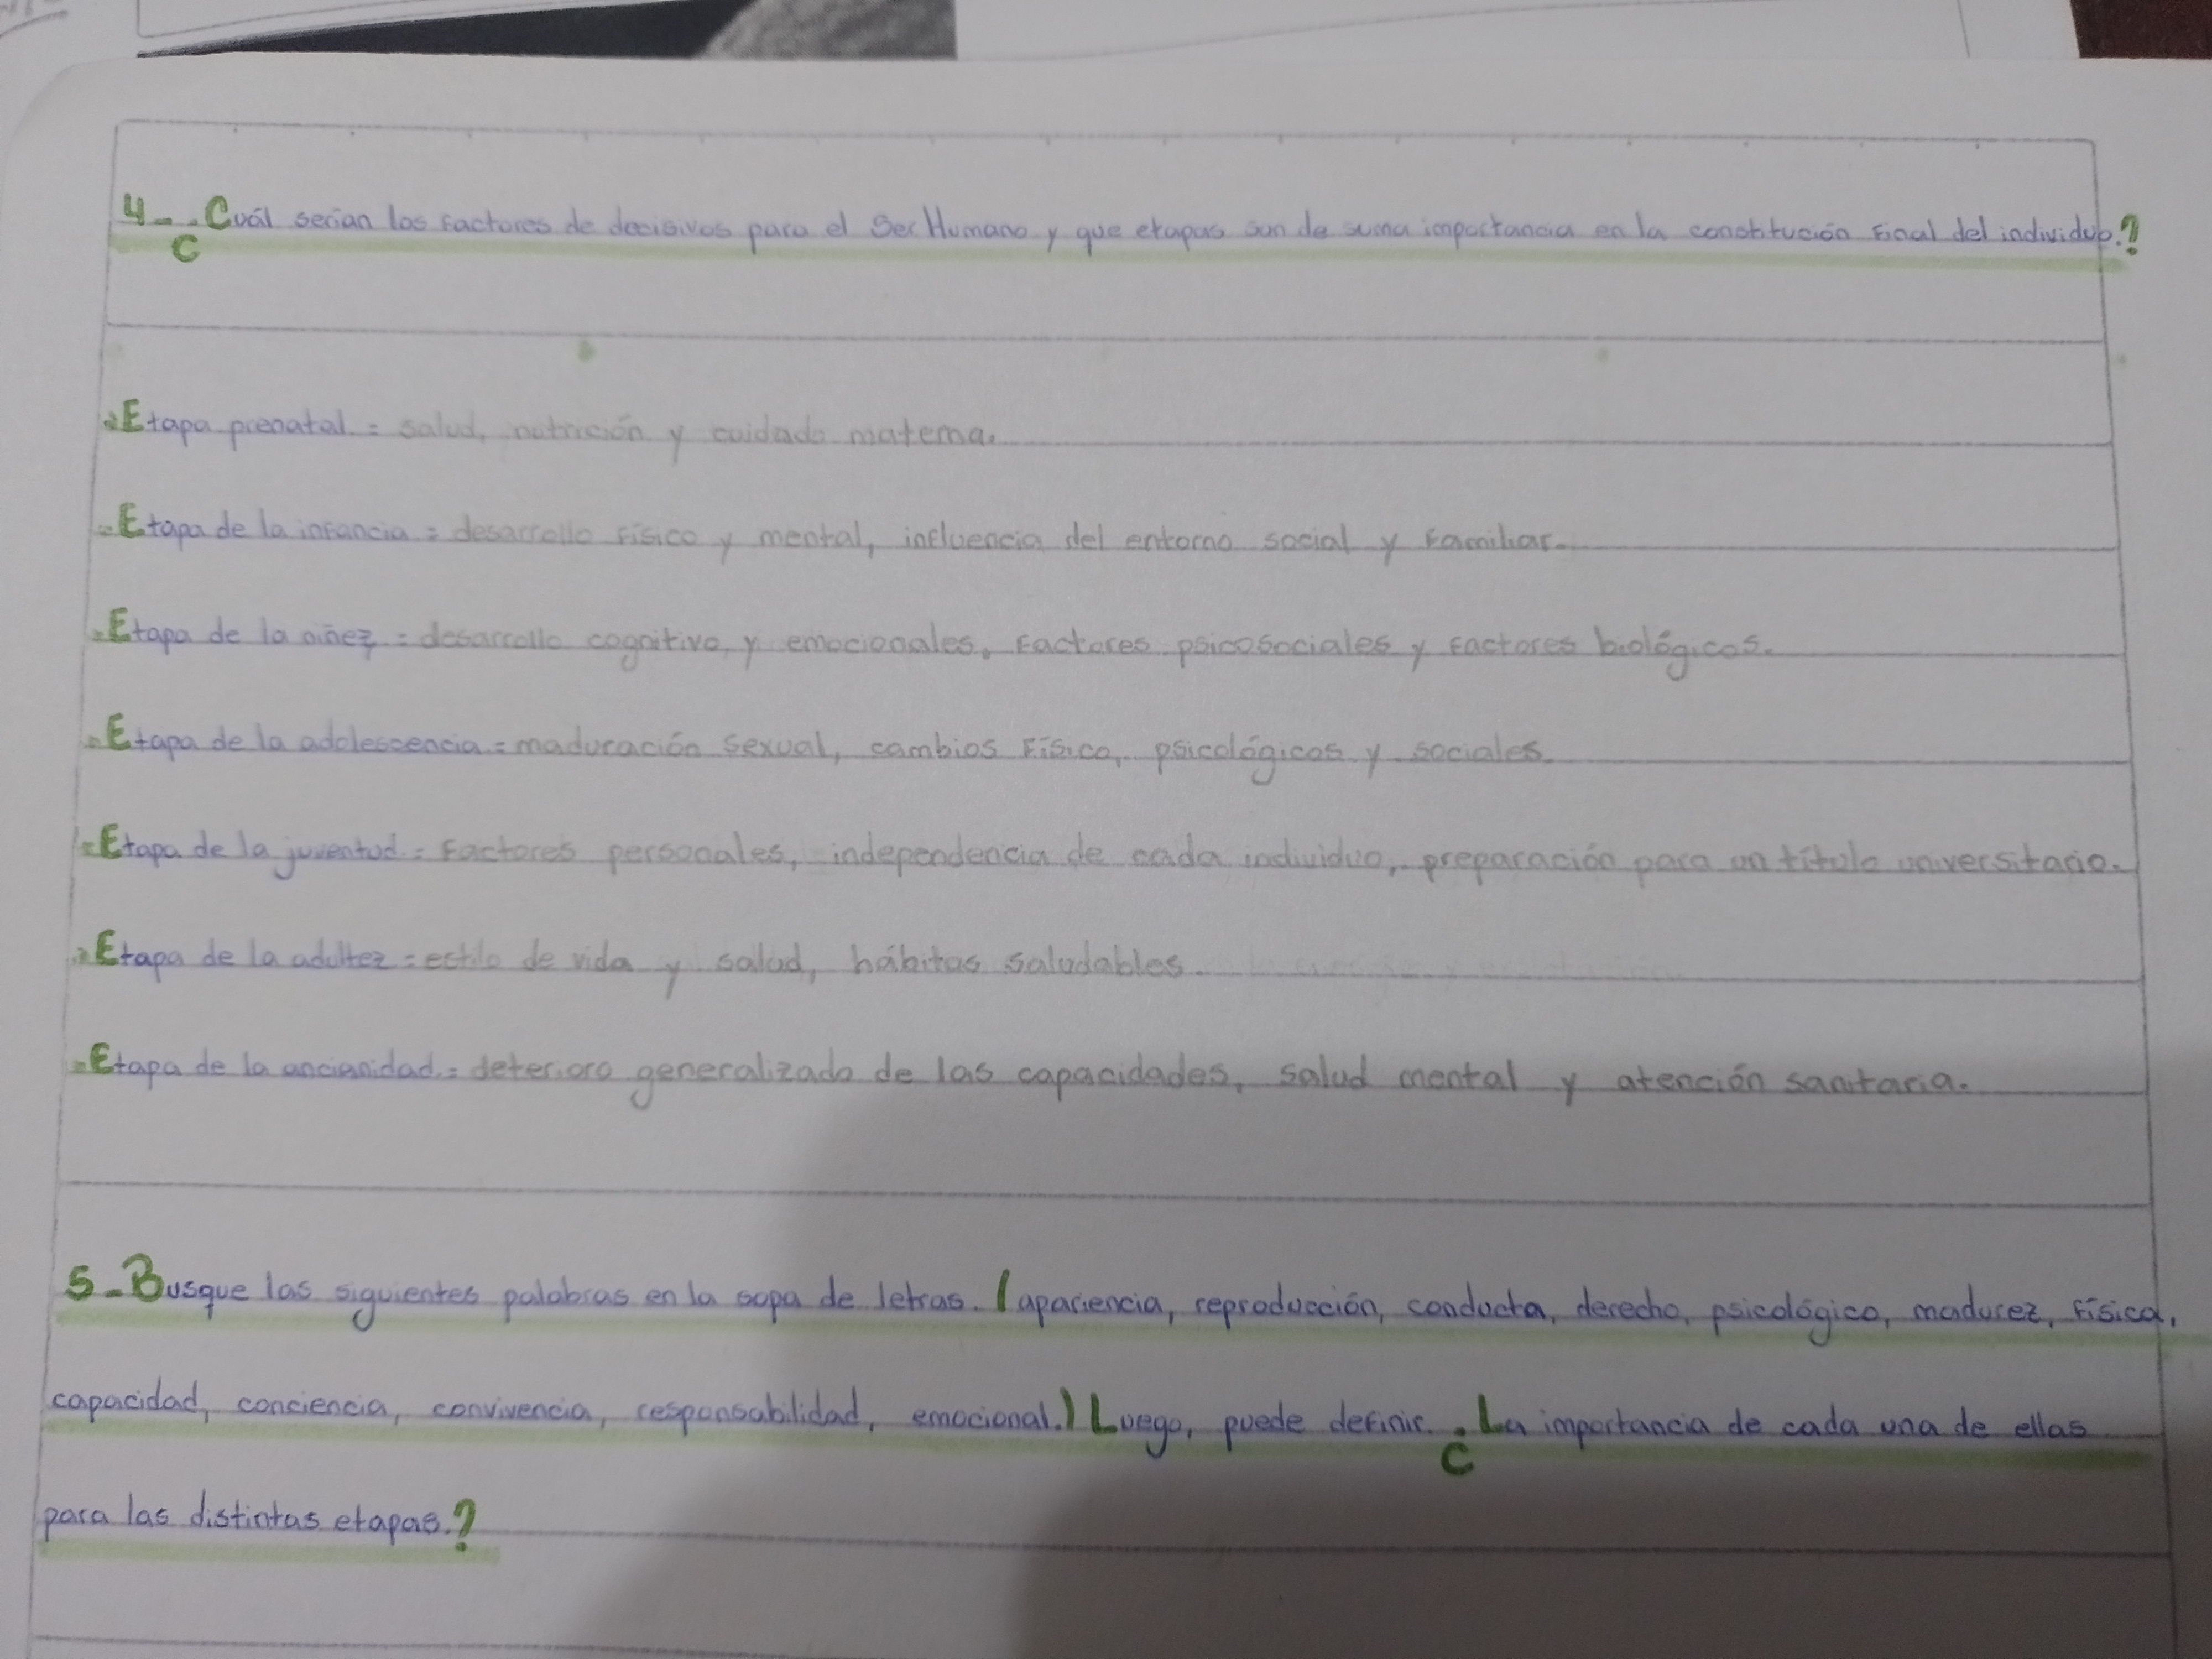 4-¿Cuál serian los factores de decisivos para el Ser Humano y que etapas son de suma importancia en la constitución final del individuo.?
-Etapa prenatal = salud, nutrición y cuidado materna.
-Etapa de la infancia = desarrollo físico y mental, influencia del entorno social y familiar.
-Etapa de la niñez = desarrollo cognitivo y emocionales, factores psicosociales y factores biológicos.
-Etapa de la adolescencia = maduración sexual, cambios físico, psicológicos y sociales.
-Etapa de la juventud = factores personales, independencia de cada individuo, preparación para un título universitario.
-Etapa de la adultez = estilo de vida y salud, hábitos saludables.
-Etapa de la ancianidad = deterioro generalizado de las capacidades, salud mental y atención sanitaria.
5-Busque las siguientes palabras en la sopa de letras. (apariencia, reproducción, conducta, derecho, psicológico, madurez, física,
capacidad, conciencia, convivencia, responsabilidad, emocional.) Luego, puede definir. ¿La importancia de cada una de ellas
para las distintas etapas.?